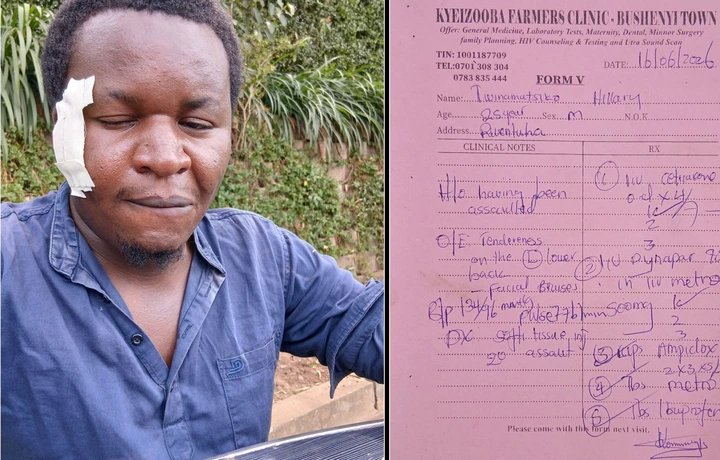 KYEIZOOBA FARMERS CLINIC - BUSHENYI TOWN
Offer: General Medicine, Laboratory Tests, Maternity, Dental, Minor Surgery
family Planning. HIV Counseling & Testing and Utra Sound Scan
TIN: 1001187709
TEL:0701 308 304
0783 835 444
DATE: 16/06/2026
FORM V
Name: Twinamatsiko Hillary
Age 25 year Sex M N.O.K
Address
CLINICAL NOTES
H/o having been
assaulted
O/E Tendereness
on the (L) lower
back
- Facial Bruises
B/p 134/96 mmHg Pulse 77b/min
DX soft tissue inj
2º assault
RX
(1) IV
1
2
3
(2) IV Dynapar
in IV metro
500mg
1
2
3
(3) caps Ampiclox
2x3x5/7
(4) Tbs metro
(5) Tbs Ibuprofen
Please come with this form next visit.